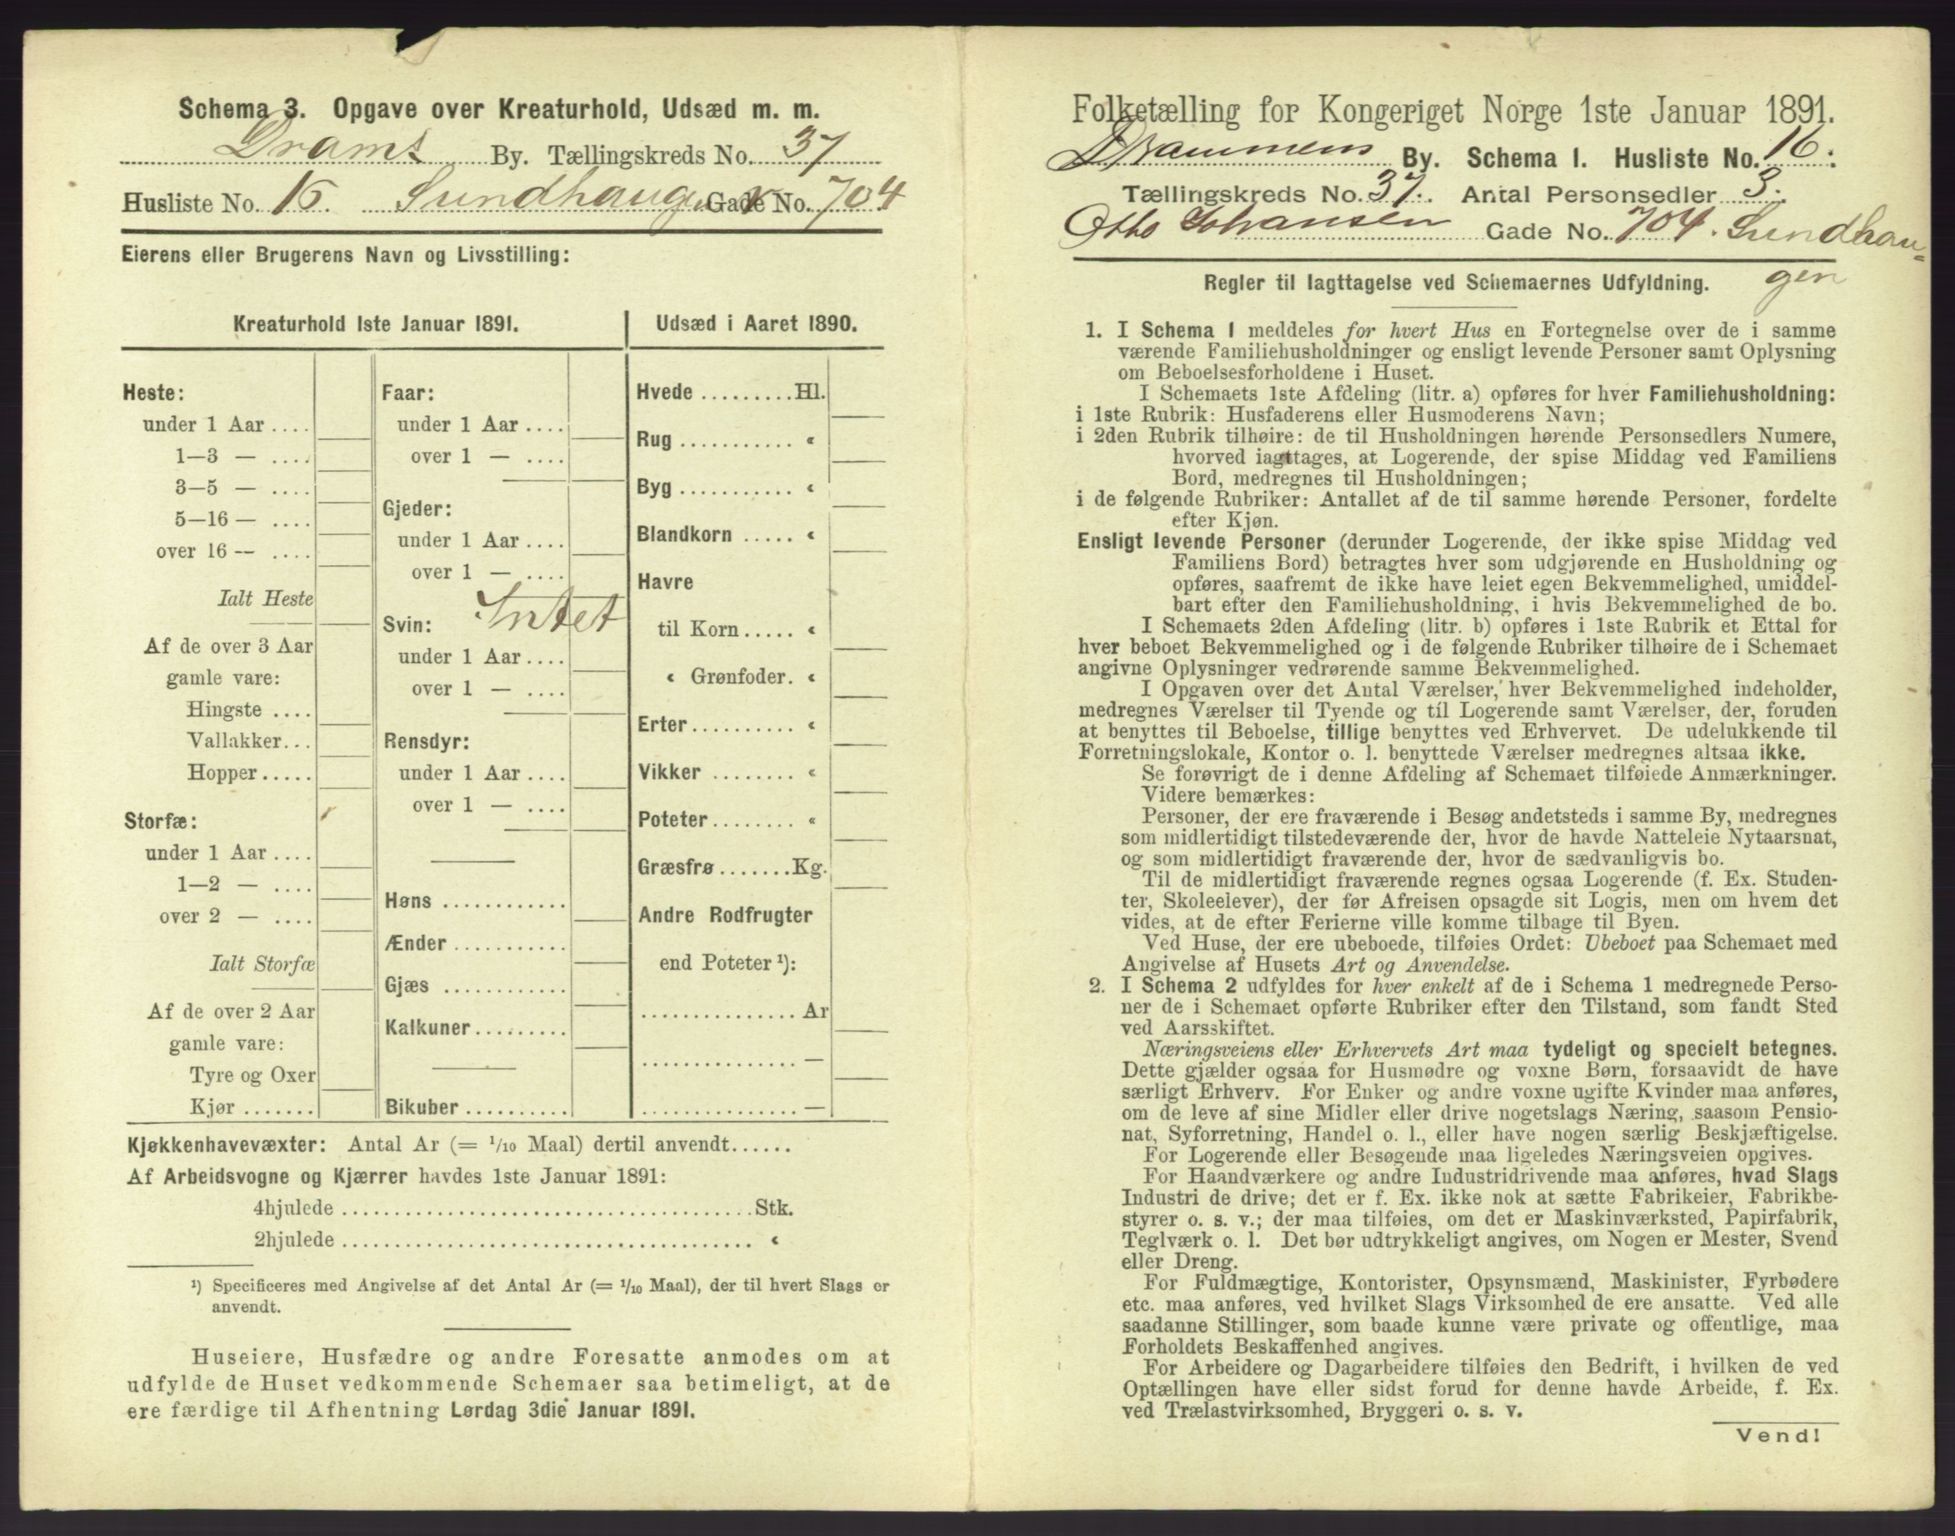 Schema 3. Opgave over Kreaturhold, Udsæd m. m.
Drams By. Tællingskreds No. 37
Husliste No. 16. Sundhaugen Gade No. 704
Eierens eller Brugerens Navn og Livsstilling:
Kreaturhold 1ste Januar 1891.
Heste:
under 1 Aar ....
1—3 — ....
3—5 — ....
5—16 — ....
over 16 — ....
Ialt Heste
Af de over 3 Aar
gamle vare:
Hingste ....
Vallakker...
Hopper.....
Storfæ:
under 1 Aar ....
1—2 — ....
over 2 — ....
Ialt Storfæ
Af de over 2 Aar
gamle vare:
Tyre og Oxer
Kjør .......
Faar:
under 1 Aar ....
over 1 — ....
Gjeder:
under 1 Aar ....
over 1 — ....
Intet
Svin:
under 1 Aar ....
over 1 — ....
Rensdyr:
under 1 Aar ....
over 1 — ....
Høns ............
Ænder ...........
Gjæs ............
Kalkuner.........
Bikuber ..........
Udsæd i Aaret 1890.
Hvede .........Hl.
Rug ........... «
Byg ........... «
Blandkorn ..... «
Havre
til Korn..... «
« Grønfoder. «
Erter.......... «
Vikker ........ «
Poteter........ «
Græsfrø .......Kg.
Andre Rodfrugter
end Poteter ¹):
............... Ar
............... —
............... —
Kjøkkenhavevæxter: Antal Ar (= 1/10 Maal) dertil anvendt......
Af Arbeidsvogne og Kjærrer havdes 1ste Januar 1891:
4hjulede ........................................Stk.
2hjulede ........................................ «
¹) Specificeres med Angivelse af det Antal Ar (= 1/10 Maal), der til hvert Slags er
anvendt.
Huseiere, Husfædre og andre Foresatte anmodes om at
udfylde de Huset vedkommende Schemaer saa betimeligt, at de
ere færdige til Afhentning Lørdag 3die Januar 1891.
Folketælling for Kongeriget Norge 1ste Januar 1891.
Drammens By. Schema 1. Husliste No. 16.
Tællingskreds No. 37. Antal Personsedler 3.
Otto Johansen Gade No. 704. Sundhau-
gen
Regler til Iagttagelse ved Schemaernes Udfyldning.
1. I Schema 1 meddeles for hvert Hus en Fortegnelse over de i samme
værende Familiehusholdninger og ensligt levende Personer samt Oplysning
om Beboelsesforholdene i Huset.
I Schemaets 1ste Afdeling (litr. a) opføres for hver Familiehusholdning:
i 1ste Rubrik: Husfaderens eller Husmoderens Navn;
i 2den Rubrik tilhøire: de til Husholdningen hørende Personsedlers Numere,
hvorved iagttages, at Logerende, der spise Middag ved Familiens
Bord, medregnes til Husholdningen;
i de følgende Rubriker: Antallet af de til samme hørende Personer, fordelte
efter Kjøn.
Ensligt levende Personer (derunder Logerende, der ikke spise Middag ved
Familiens Bord) betragtes hver som udgjørende en Husholdning og
opføres, saafremt de ikke have leiet egen Bekvemmelighed, umiddel-
bart efter den Familiehusholdning, i hvis Bekvemmelighed de bo.
I Schemaets 2den Afdeling (litr. b) opføres i 1ste Rubrik et Ettal for
hver beboet Bekvemmelighed og i de følgende Rubriker tilhøire de i Schemaet
angivne Oplysninger vedrørende samme Bekvemmelighed.
I Opgaven over det Antal Værelser, hver Bekvemmelighed indeholder,
medregnes Værelser til Tyende og til Logerende samt Værelser, der, foruden
at benyttes til Beboelse, tillige benyttes ved Erhvervet. De udelukkende til
Forretningslokale, Kontor o. l. benyttede Værelser medregnes altsaa ikke.
Se forøvrigt de i denne Afdeling af Schemaet tilføiede Anmærkninger.
Videre bemærkes:
Personer, der ere fraværende i Besøg andetsteds i samme By, medregnes
som midlertidigt tilstedeværende der, hvor de havde Natteleie Nytaarsnat,
og som midlertidigt fraværende der, hvor de sædvanligvis bo.
Til de midlertidigt fraværende regnes ogsaa Logerende (f. Ex. Studen-
ter, Skoleelever), der før Afreisen opsagde sit Logis, men om hvem det
vides, at de efter Ferierne ville komme tilbage til Byen.
Ved Huse, der ere ubeboede, tilføies Ordet: Ubeboet paa Schemaet med
Angivelse af Husets Art og Anvendelse.
2. I Schema 2 udfyldes for hver enkelt af de i Schema 1 medregnede Perso-
ner de i Schemaet opførte Rubriker efter den Tilstand, som fandt Sted
ved Aarsskiftet.
Næringsveiens eller Erhvervets Art maa tydeligt og specielt betegnes.
Dette gjælder ogsaa for Husmødre og voxne Børn, forsaavidt de have
særligt Erhverv. For Enker og andre voxne ugifte Kvinder maa anføres,
om de leve af sine Midler eller drive nogetslags Næring, saasom Pensio-
nat, Syforretning, Handel o. l., eller have nogen særlig Beskjæftigelse.
For Logerende eller Besøgende maa ligeledes Næringsveien opgives.
For Haandværkere og andre Industridrivende maa anføres, hvad Slags
Industri de drive; det er f. Ex. ikke nok at sætte Fabrikeier, Fabrikbe-
styrer o. s. v.; der maa tilføies, om det er Maskinværksted, Papirfabrik,
Teglværk o. l. Det bør udtrykkeligt angives, om Nogen er Mester, Svend
eller Dreng.
For Fuldmægtige, Kontorister, Opsynsmænd, Maskinister, Fyrbødere
etc. maa anføres, ved hvilket Slags Virksomhed de ere ansatte. Ved alle
saadanne Stillinger, som baade kunne være private og offentlige, maa
Forholdets Beskaffenhed angives.
For Arbeidere og Dagarbeidere tilføies den Bedrift, i hvilken de ved
Optællingen have eller sidst forud for denne havde Arbeide, f. Ex.
ved Trælastvirksomhed, Bryggeri o. s. v.
Vend!